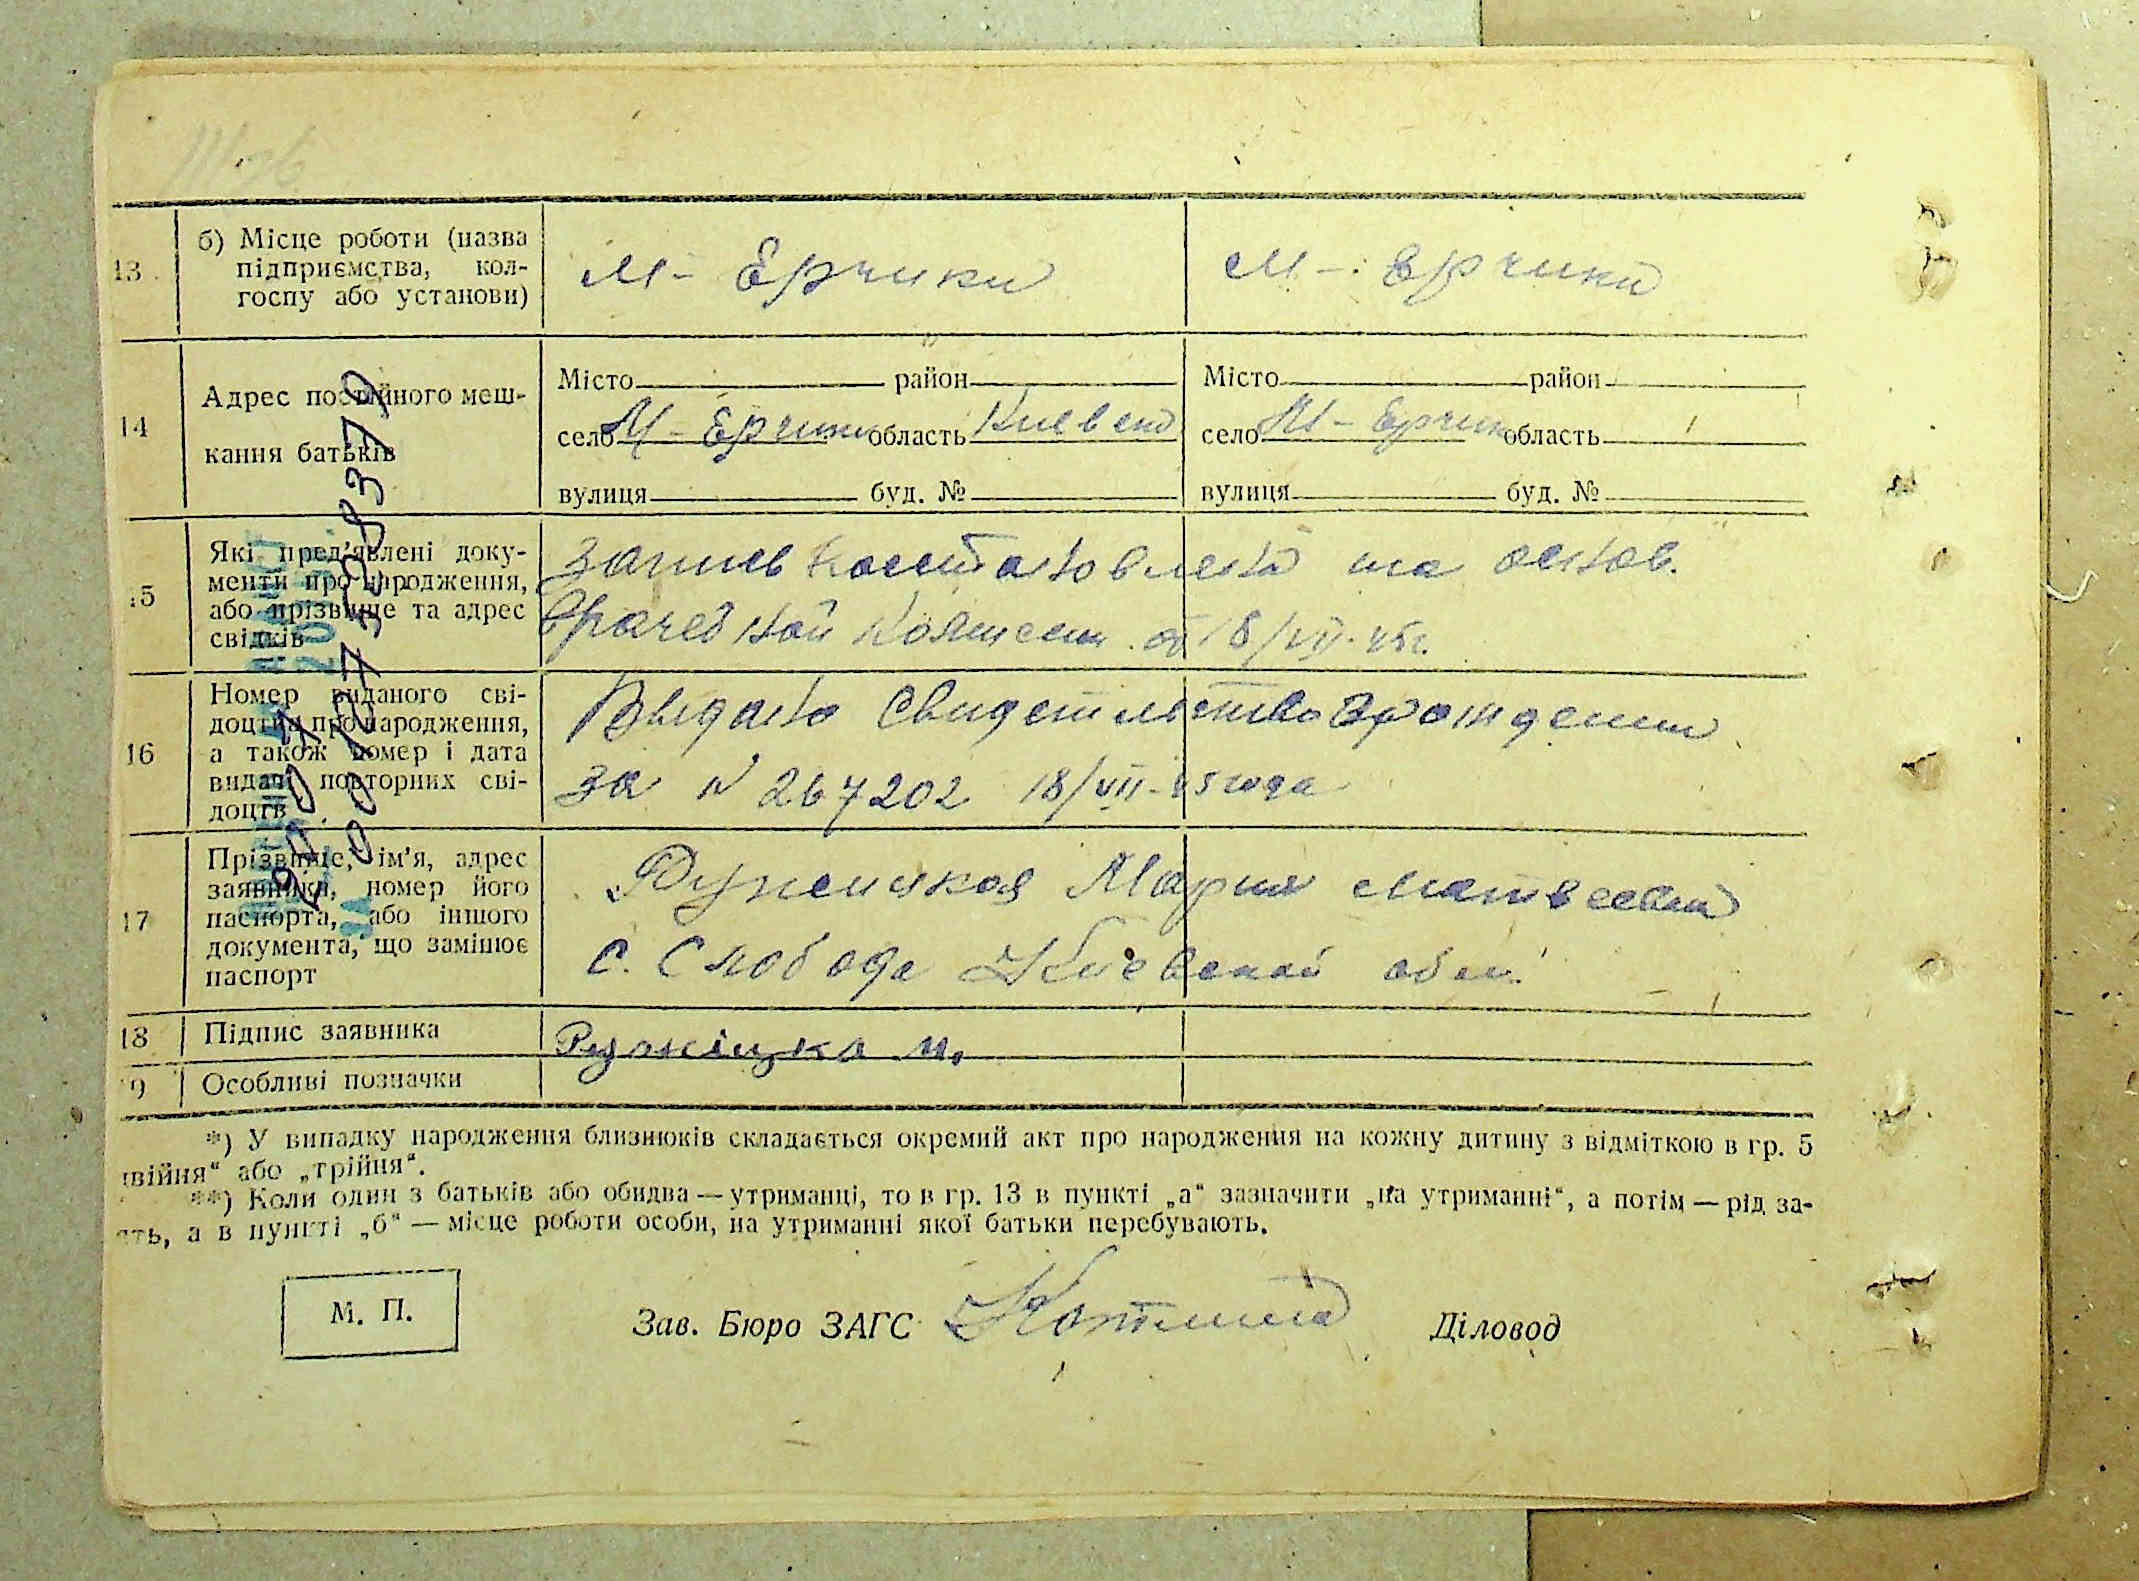 13
б) Місце роботи (назва
підприємства, кол-
госпу або установи)
М- Ерчики
М- Ерчики
14
Адрес постійного меш-
кання батьків
Місто район
село М-Ерчики область Киевско
вулиця буд. №
Місто район
село М-Ерчик область
вулиця буд. №
15
Які пред'явлені доку-
менти про народження,
або прізвище та адрес
свідків
запись на основ.
врачебной от 18/VII-45г.
16
Номер виданого сві-
доцтва про народження,
а також номер і дата
видачі повторних сві-
доцтв
Выдано свидетельство о рождении
за № 267202 18/VII-45 года
17
Прізвище, ім'я, адрес
заявника, номер його
паспорта, або іншого
документа, що замінює
паспорт
Мария Матвеевна
с. Слобода Киевской обл.
18
Підпис заявника
Ружніцка М.
19
Особливі позначки
*) У випадку народження близнюків складається окремий акт про народження на кожну дитину з відміткою в гр. 5
двійня“ або „трійня“.
**) Коли один з батьків або обидва — утриманці, то в гр. 13 в пункті „а“ зазначити „на утриманні“, а потім — рід за-
ять, а в пункті „б“ — місце роботи особи, на утриманні якої батьки перебувають.
М. П.
Зав. Бюро ЗАГС
Діловод